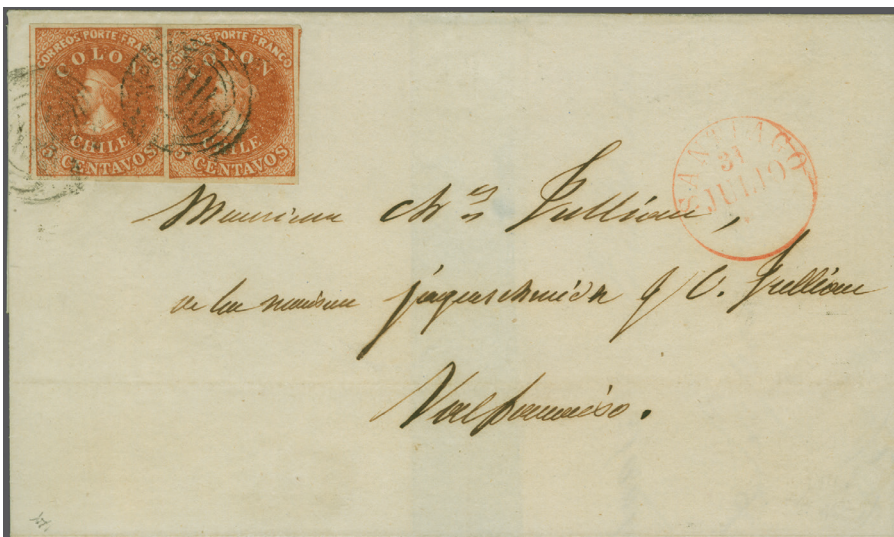 CORREOS PORTE FRANCO
COLON
CHILE
CENTAVOS
CORREOS PORTE FRANCO
COLON
CHILE
5 CENTAVOS
SANTIAGO
31
JULIO
Monsieur Ch.s Jullian,
de la maison Jagerschmidt & C. Jullian
Valparaiso.